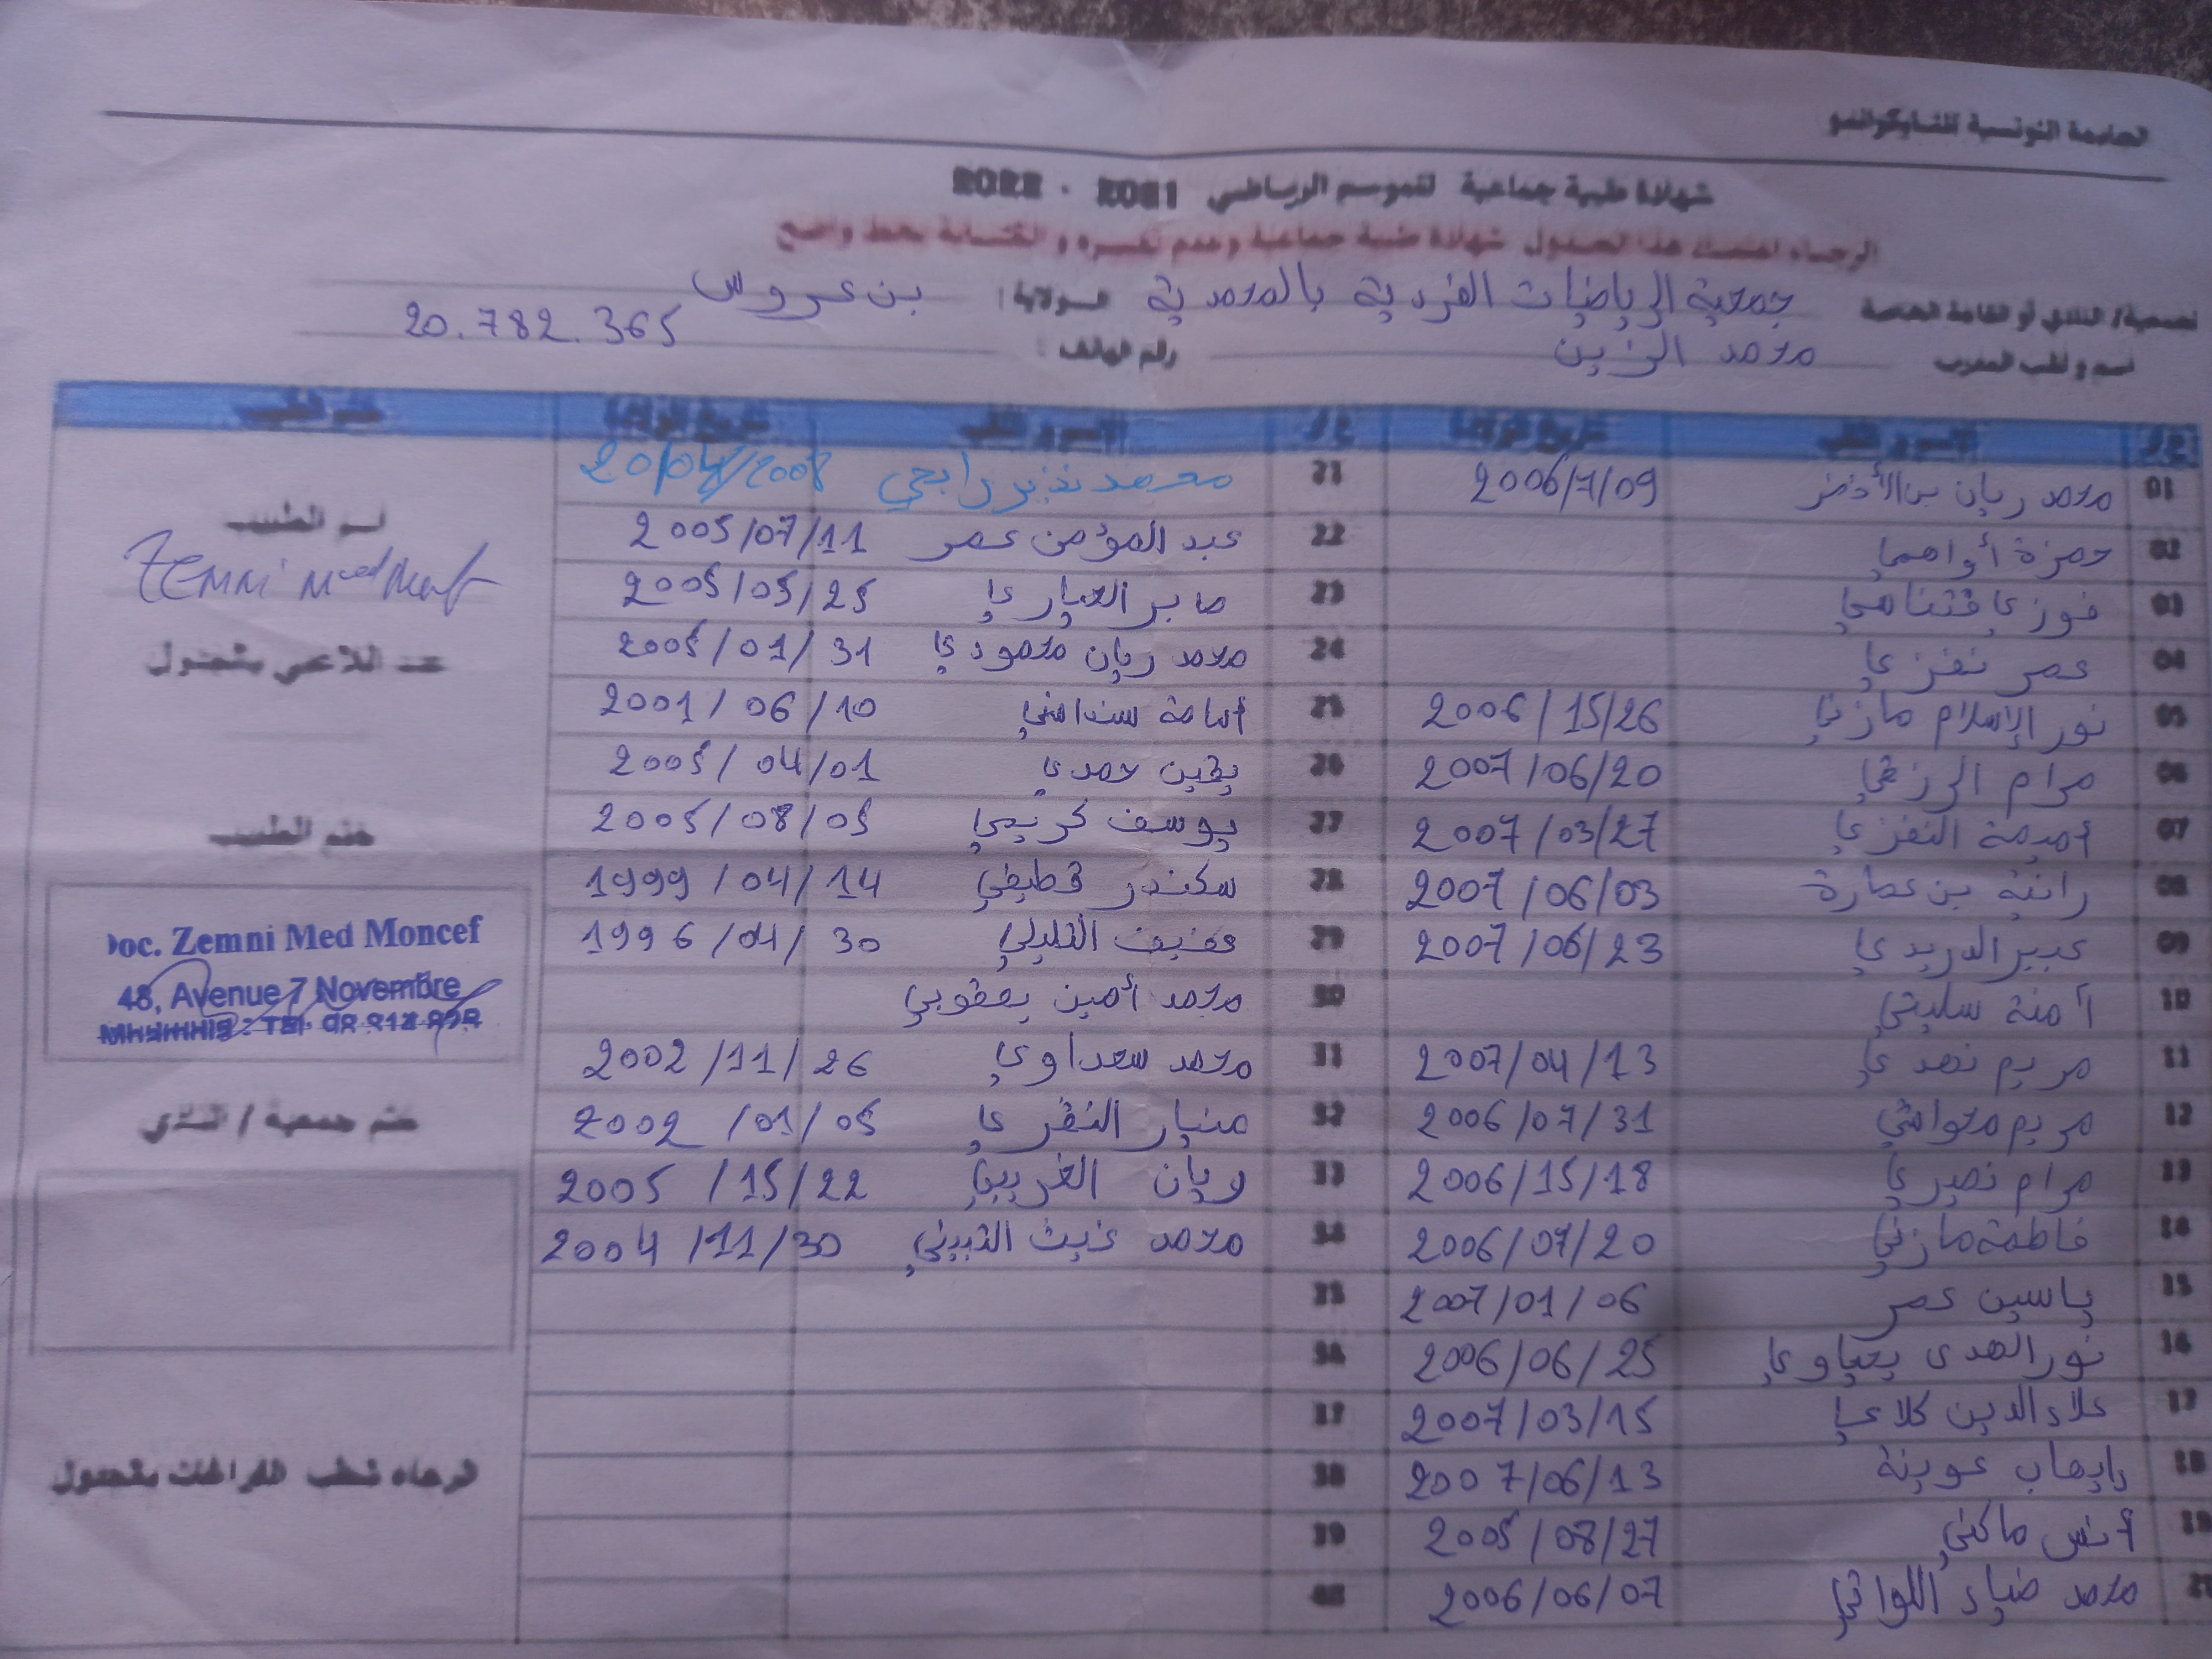 الجامعة التونسية للتايكواندو
شهادة طبية جماعية للموسم الرياضي 2021 - 2022
الرجاء اعتماد هذا الجدول شهادة طبية جماعية وعدم تغييره و الكتابة بخط واضح
الجمعية/ النادي أو القاعة الخاصة جمعية الرياضات الفردية بالمحمدية الولاية : بن عروس
اسم و لقب المدرب محمد الزين رقم الهاتف : 20.782.365
ع/ر الاسم و اللقب تاريخ الولادة ع/ر الاسم و اللقب تاريخ الولادة ختم الطبيب
01 محمد ريان بن الأخضر 2006/7/09 21 محمد نذير رابحي 20/04/2008
02 حمزة أواهما 22 عبد المؤمن عمر 2005/07/11
03 فوزي 23 صابر العياري 2005/05/25
04 عمر نفزي 24 محمد ريان محمودي 2005/01/31
05 نور الإسلام مازني 2006/15/26 25 أسامة 2001/06/10
06 مرام الرزقي 2007/06/20 26 يقين حمدي 2005/04/01
07 أميمة النفزي 2007/03/27 27 يوسف كريمي 2005/08/05
08 رانية بن عمارة 2007/06/03 28 سكندر قطيفي 1999/04/14
09 عبير الدريدي 2007/06/23 29 عفيف 1996/04/30
10 آمنة سليتي 30 محمد أمين يعقوبي
11 مريم نهدي 2007/04/13 31 محمد سعداوي 2002/11/26
12 مريم 2006/07/31 32 منيار النفزي 2002/01/05
13 مرام نصيري 2006/15/18 33 ريان الغريبي 2005/15/22
14 فاطمة مازني 2006/07/20 34 محمد غيث 2004/11/30
15 ياسين عمر 2007/01/06 35
16 نور الهدى يحياوي 2006/06/25 36
17 علاء الدين كلاعي 2007/03/15 37
18 إيهاب عوينة 2007/06/13 38
19 أنس ماكني 2005/08/27 39
20 محمد ضياء اللواتي 2006/06/07 40
اسم الطبيب
Zemni Med
عدد اللاعبين بالجدول
ختم الطبيب
Doc. Zemni Med Moncef
48, Avenue 7 Novembre
ختم جمعية / النادي
الرجاء شطب الفراغات بالجدول